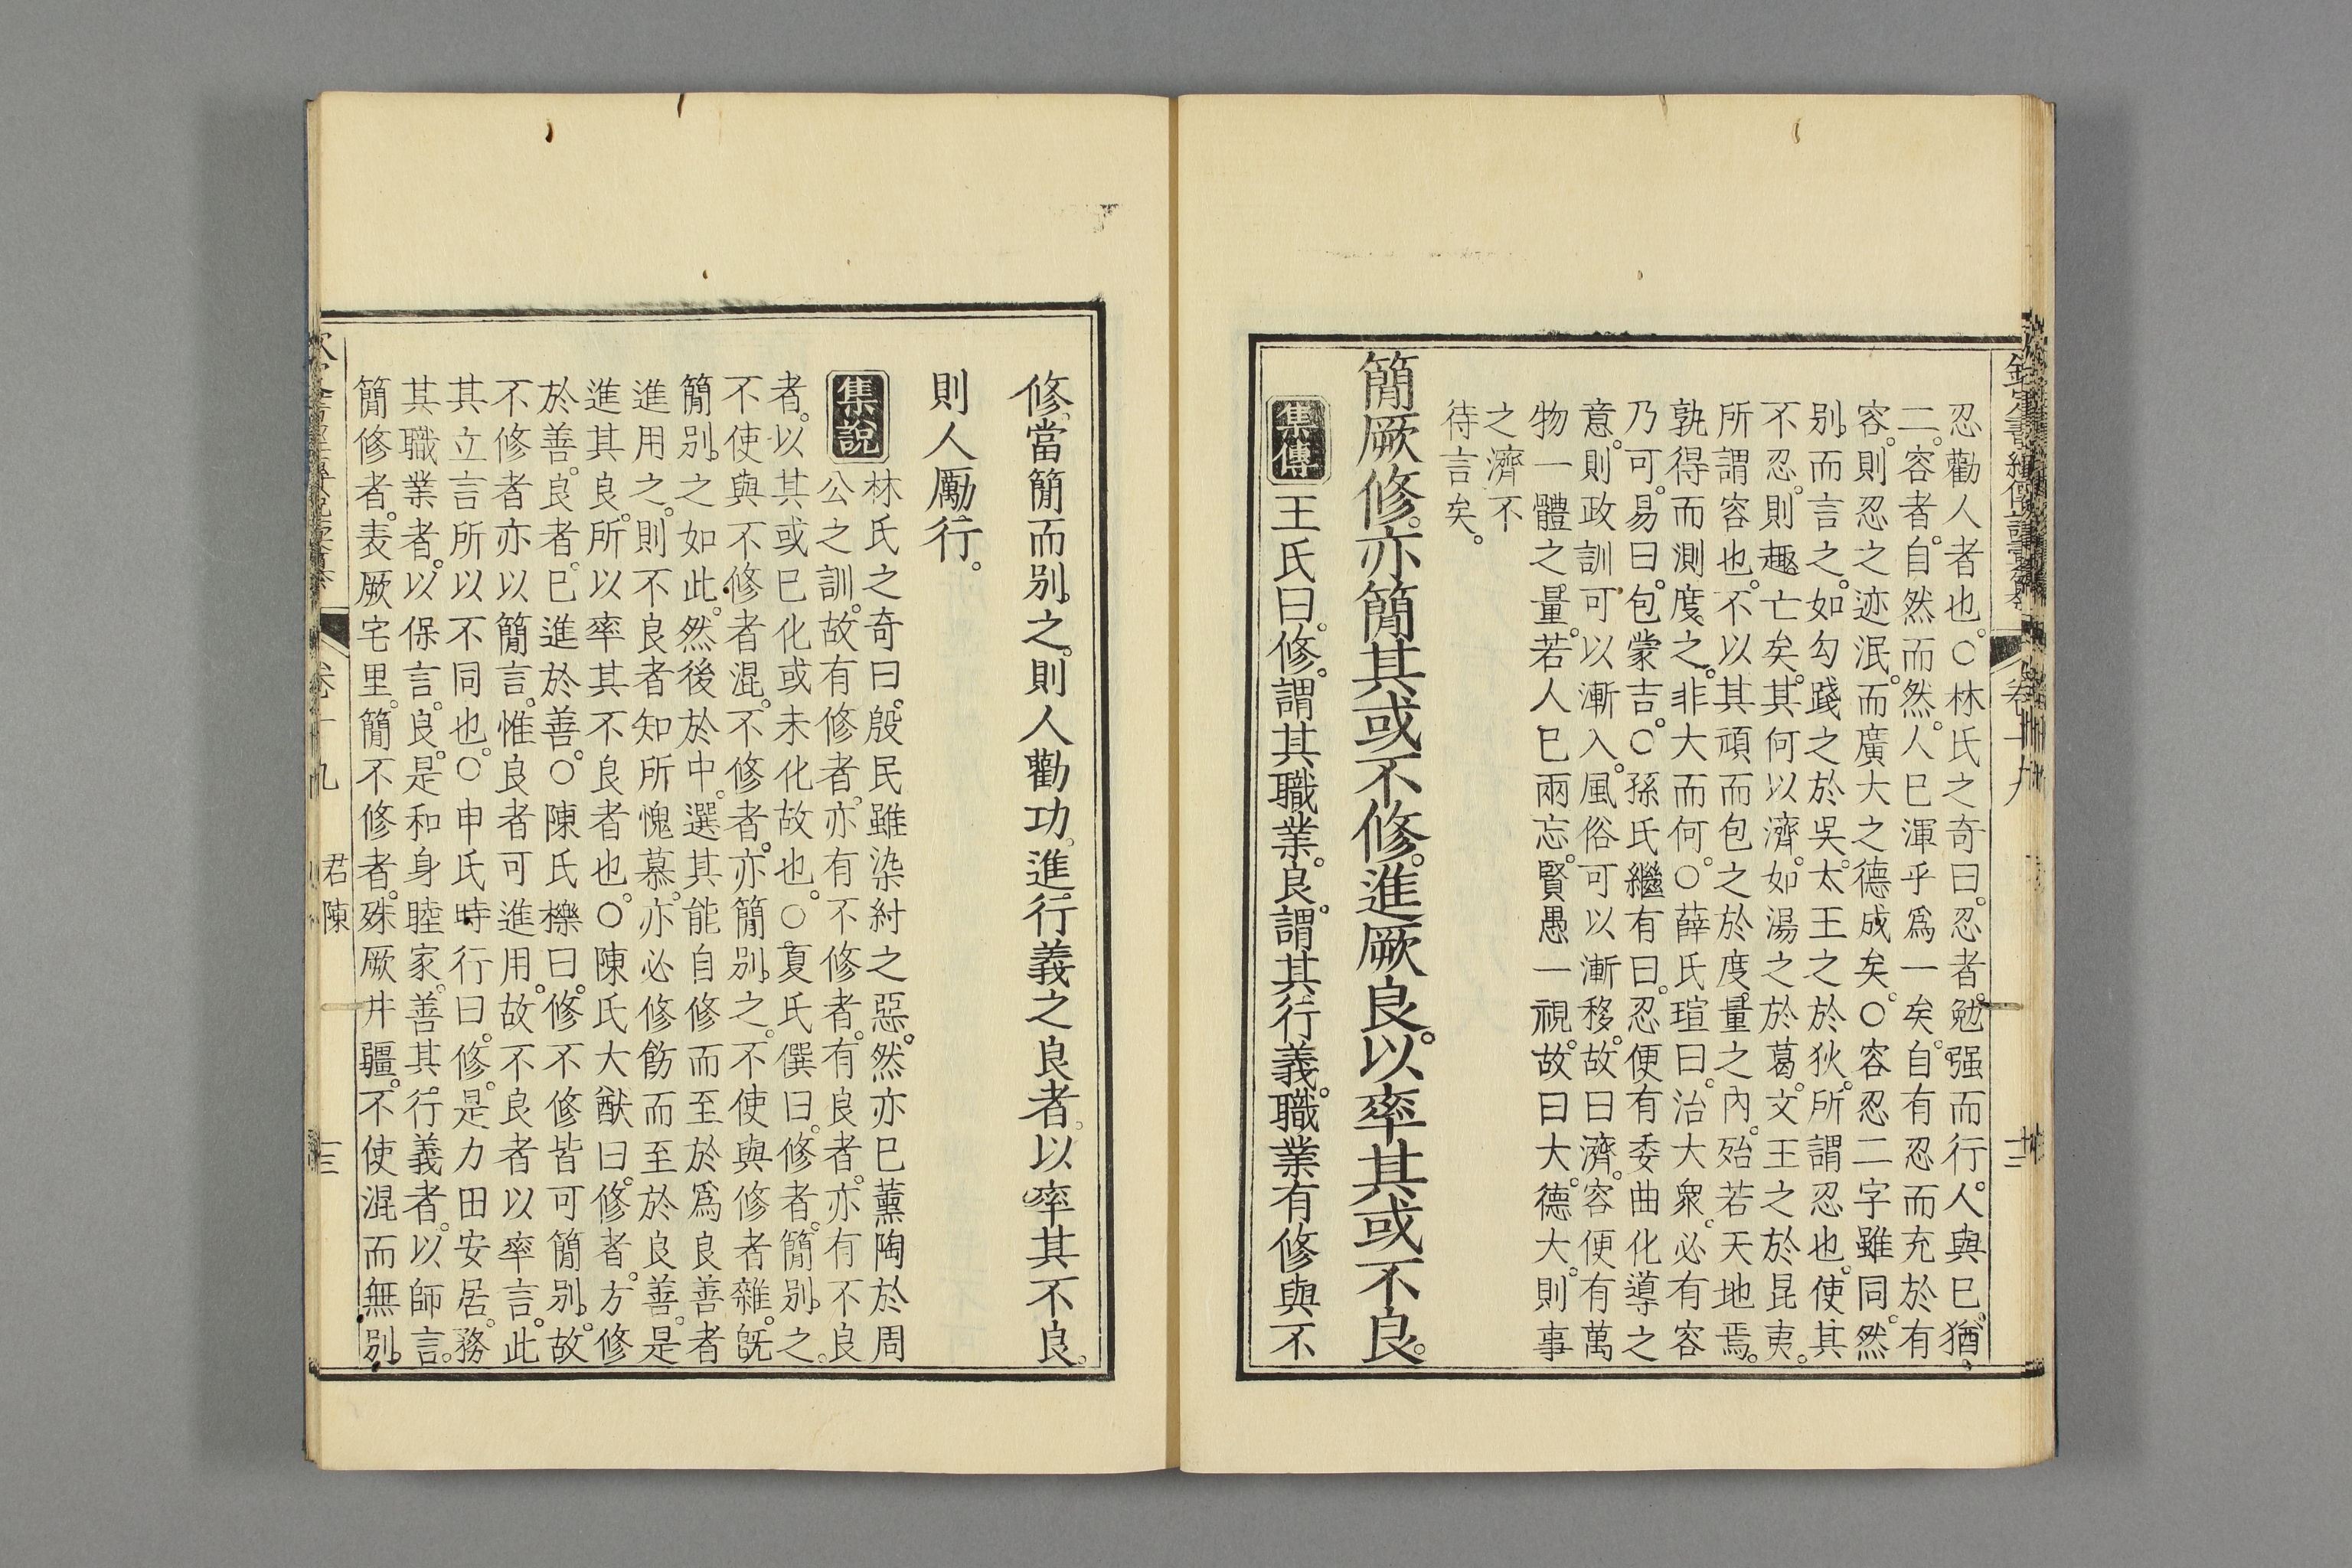 忍勸人者也。○林氏之奇曰。忍者。勉强而行。人與巳。猶。
二。容者。自然而然。人巳渾乎爲一矣。自有忍而充於有
容。則忍之迹泯。而廣大之德成矣。○容忍二字雖同。然
别而言之。如勾踐之於吳。太王之於狄。所謂忍也。使其
不忍。則趣亡矣。其何以濟。如湯之於葛。文王之於昆夷。
所謂容也。不以其頑而包之於度量之內。殆若天地焉。
孰得而測度之。非大而何。○薛氏瑄曰。治大衆。必有容
乃可。易曰。包蒙吉。○孫氏繼有曰。忍便有委曲化導之
意。則政訓可以漸入。風俗可以漸移。故曰濟。容便有萬
物一體之量。若人巳兩忘。賢愚一視。故曰大。德大。則事
之濟不
待言矣。
簡厥修。亦簡其或不修。進厥良。以率其或不良。
集傳 王氏曰。修。謂其職業。良。謂其行義。職業有修與不
修。當簡而别之。則人勸功。進行義之良者。以率其不良。
則人厲行。
集說 林氏之奇曰。殷民雖染紂之惡。然亦巳薰陶於周
公之訓。故有修者。亦有不修者。有良者。亦有不良
者。以其或巳化或未化故也。○夏氏僎曰。修者。簡别之。
不使與不修者混。不修者。亦簡别之。不使與修者雜。旣
簡别之如此。然後於中選其能自修而至於爲良善者
進用之。則不良者知所愧慕。亦必修飭而至於良善。是
進其良。所以率其不良者也。○陳氏大猷曰。修者。方修
於善。良者。巳進於善。○陳氏櫟曰。修不修皆可簡别。故
不修者亦以簡言。惟良者可進用。故不良者以率言。此
其立言所以不同也。○申氏時行曰。修。是力田安居。務
其職業者。以保言。良。是和身睦家。善其行義者。以師言。
簡修者。表厥宅里。簡不修者。殊厥井疆。不使混而無别。
卷十九 君陳 十三